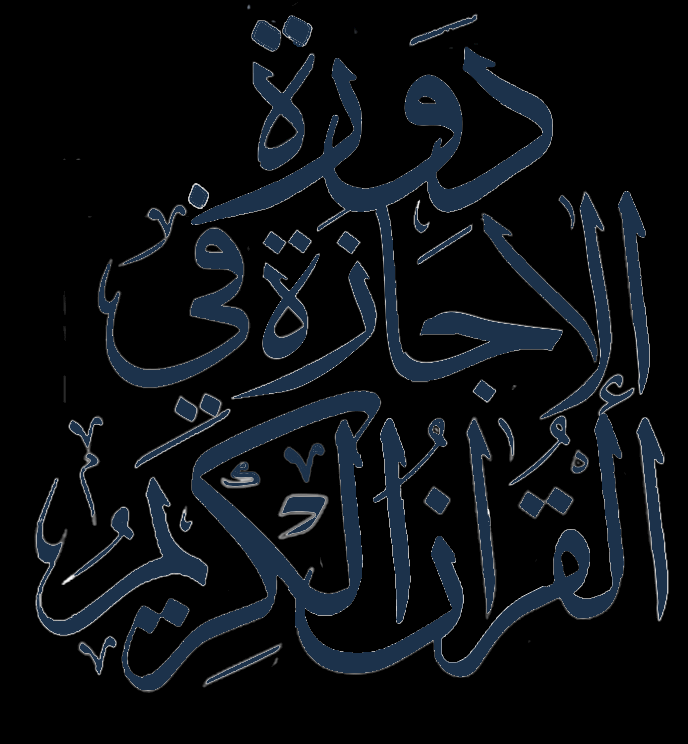 دورة
الإجازة في
القرآن الكريم